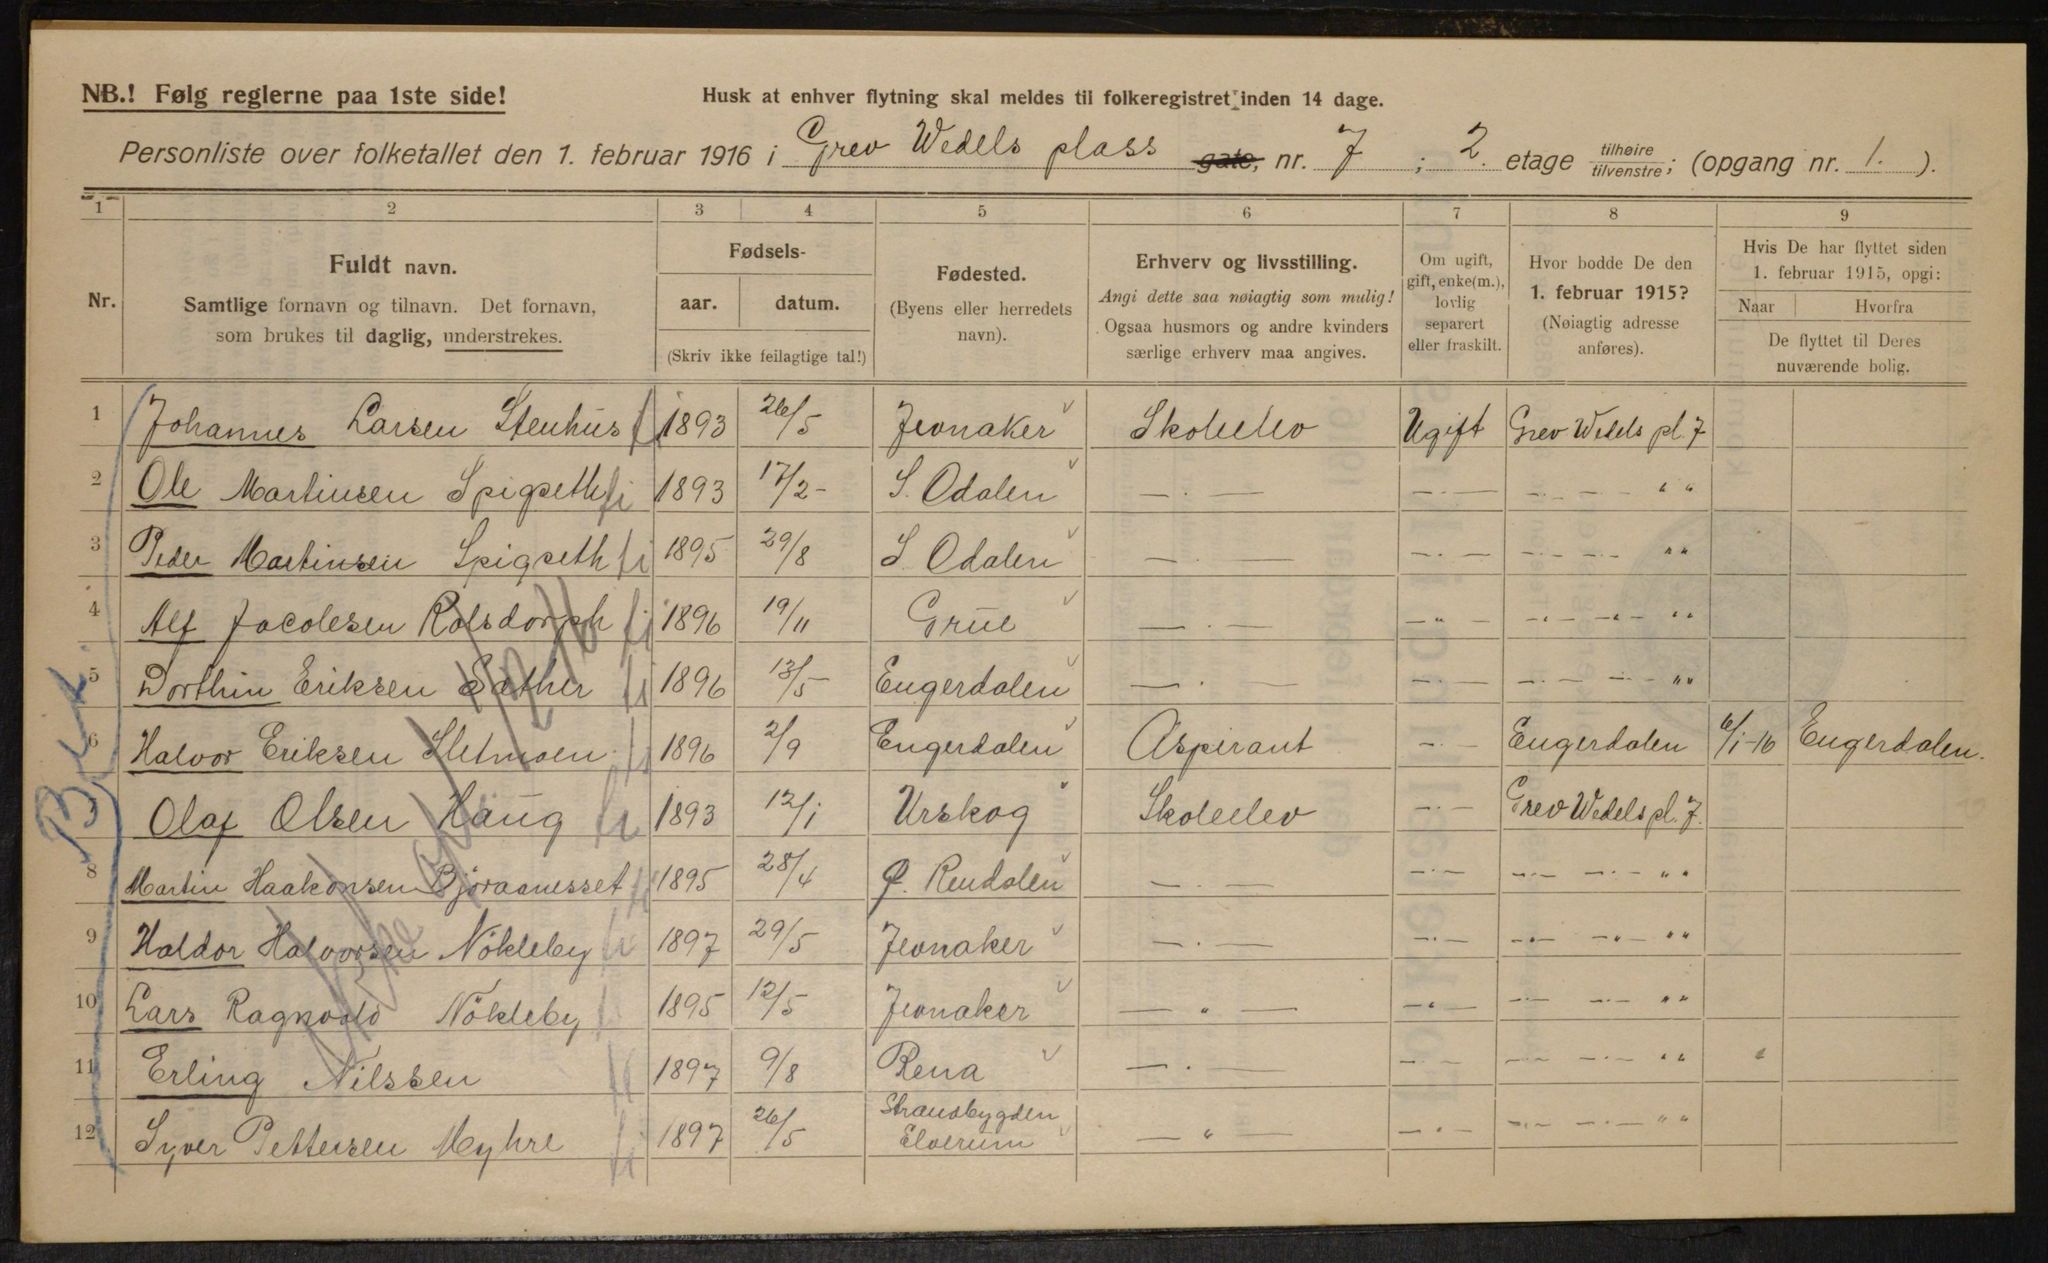 NB.! Følg reglerne paa 1ste side!
Husk at enhver flytning skal meldes til folkeregistret inden 14 dage.
Personliste over folketallet den 1. februar 1916 i Grev Wedels plass gate, nr. 7; 2. etage tilhøire/tilvenstre; (opgang nr. 1.).
1 2 3 4 5 6 7 8 9
Nr.
Fuldt navn.
Samtlige fornavn og tilnavn. Det fornavn,
som brukes til daglig, understrekes.
Fødsels-
aar. datum.
(Skriv ikke feilagtige tal!)
Fødested.
(Byens eller herredets
navn).
Erhverv og livsstilling.
Angi dette saa nøiagtig som mulig!
Ogsaa husmors og andre kvinders
særlige erhverv maa angives.
Om ugift,
gift, enke(m.),
lovlig
separert
eller fraskilt.
Hvor bodde De den
1. februar 1915?
(Nøiagtig adresse
anføres).
Hvis De har flyttet siden
1. februar 1915, opgi:
Naar Hvorfra
De flyttet til Deres
nuværende bolig.
1 Johannes Larsen Stenhus 1893 26/5 Jevnaker Skoleelev Ugift Grev Wedels pl. 7
2 Ole Martinsen Spigseth 1893 17/2 - S. Odalen — . — — . — — . — — . — " "
3 Peder Martinsen Spigseth 1895 29/8 S. Odalen — . — — . — — . — — . — " "
4 Alf Jacobsen Rolsdorph 1896 19/11 Grue — . — — " — — " — — " — " "
5 Dorthin Eriksen Sæther 1896 13/5 Engerdalen — . — — . — — . — — . — " "
6 Halvor Eriksen Sletmoen 1896 2/9 Engerdalen Aspirant — . — Engerdalen 6/1-16 Engerdalen.
7 Olaf Olsen Haug 1893 12/1 Urskog Skoleelev — . — Grev Wedels pl. 7.
8 Martin Haakonsen Bjøraanesset 1895 28/4 Ø. Rendalen — . — — . — — . — — . — " "
9 Haldor Halvorsen Nökleby 1897 29/5 Jevnaker — . — — . — — . — — " — " "
10 Lars Ragnvald Nökleby 1895 12/5 Jevnaker — " — — " — — . — — . — " "
11 Erling Nilssen 1897 9/8 Rena — . — — . — — . — — . — " "
12 Syver Pettersen Myhre 1897 26/5 Strandbygden — " — — . — — . — — . — " "
Elverum